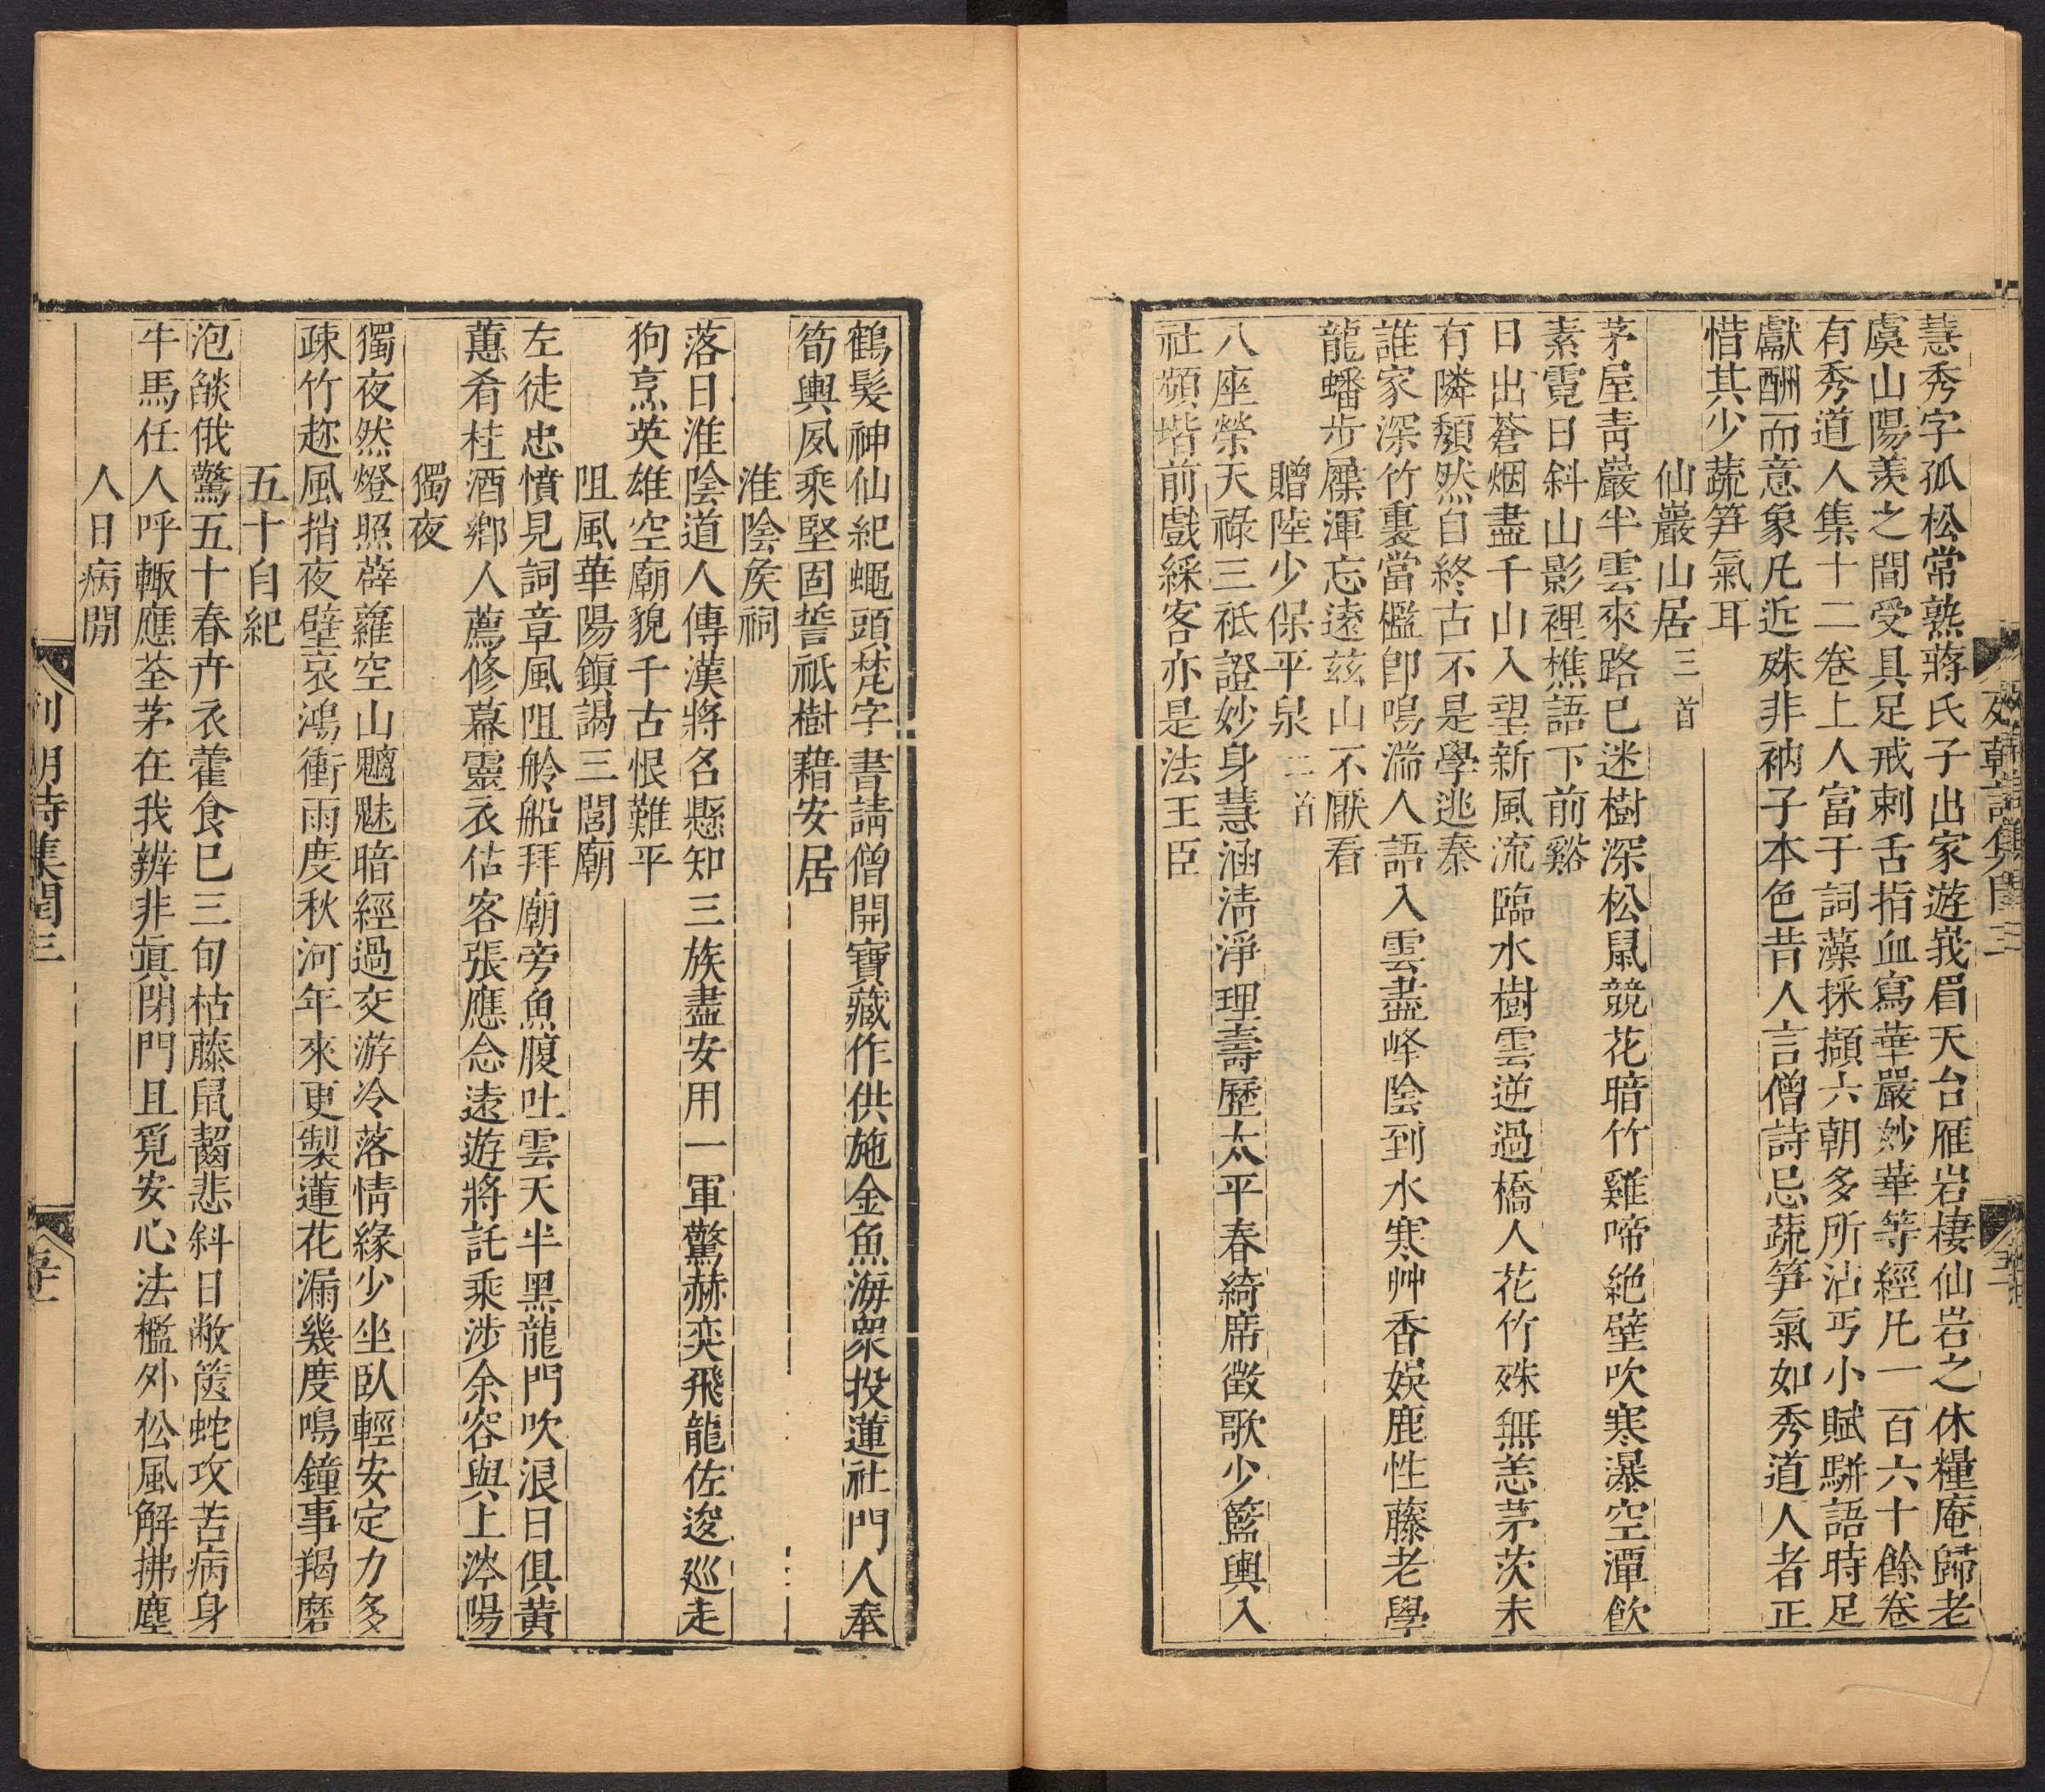 慧秀字孤松常熟蔣氏子出家遊峩眉天台雁岩棲仙岩之休糧庵歸老
虞山陽羨之間受具足戒刺舌指血寫華嚴妙華等經凡一百六十餘卷
有秀道人集十二卷上人富于詞藻採擷六朝多所沾丐小賦駢語時足
獻酬而意象凡近殊非衲子本色昔人言僧詩忌蔬笋氣如秀道人者正
惜其少蔬笋氣耳
仙巖山居三首
茅屋靑巖半雲來路已迷樹深松鼠競花暗竹雞啼絶壁吹寒瀑空潭飮
素霓日斜山影裡樵語下前谿
日出蒼烟盡千山入望新風流臨水樹雲逆過橋人花竹殊無恙茅茨未
有隣頽然自終古不是學逃秦
誰家深竹裏當檻卽鳴湍人語入雲盡峰陰到水寒艸香娛鹿性藤老學
龍蟠步屧渾忘遠茲山不厭看
贈陸少保平泉二首
八座榮天祿三祇證妙身慧涵淸淨理壽歷太平春綺席徵歌少籃輿入
社頻堦前戲綵客亦是法王臣
鶴髮神仙紀蠅頭梵字書請僧開寶藏作供施金魚海衆投蓮社門人奉
筍輿夙乘堅固誓祇樹藉安居
淮陰矦祠
落日淮陰道人傳漢將名懸知三族盡安用一軍驚赫奕飛龍佐逡巡走
狗烹英雄空廟貌千古恨難平
阻風華陽鎭謁三閭廟
左徒忠憤見詞章風阻舲船拜廟旁魚腹吐雲天半黑龍門吹浪日俱黃
蕙肴桂酒鄕人薦修幕靈衣估客張應念遠遊將託乘涉余容與上涔陽
獨夜
獨夜然燈照薜蘿空山魑魅暗經過交游冷落情緣少坐臥輕安定力多
疎竹趂風捎夜壁哀鴻衝雨度秋河年來更製蓮花漏幾度鳴鐘事羯磨
五十自紀
泡燄俄驚五十春卉衣藿食已三旬枯藤鼠齧悲斜日敝篋蛇攻苦病身
牛馬任人呼輙應荃茅在我辨非眞閉門且覓安心法檻外松風解拂塵
人日病閒
列朝詩集閏三